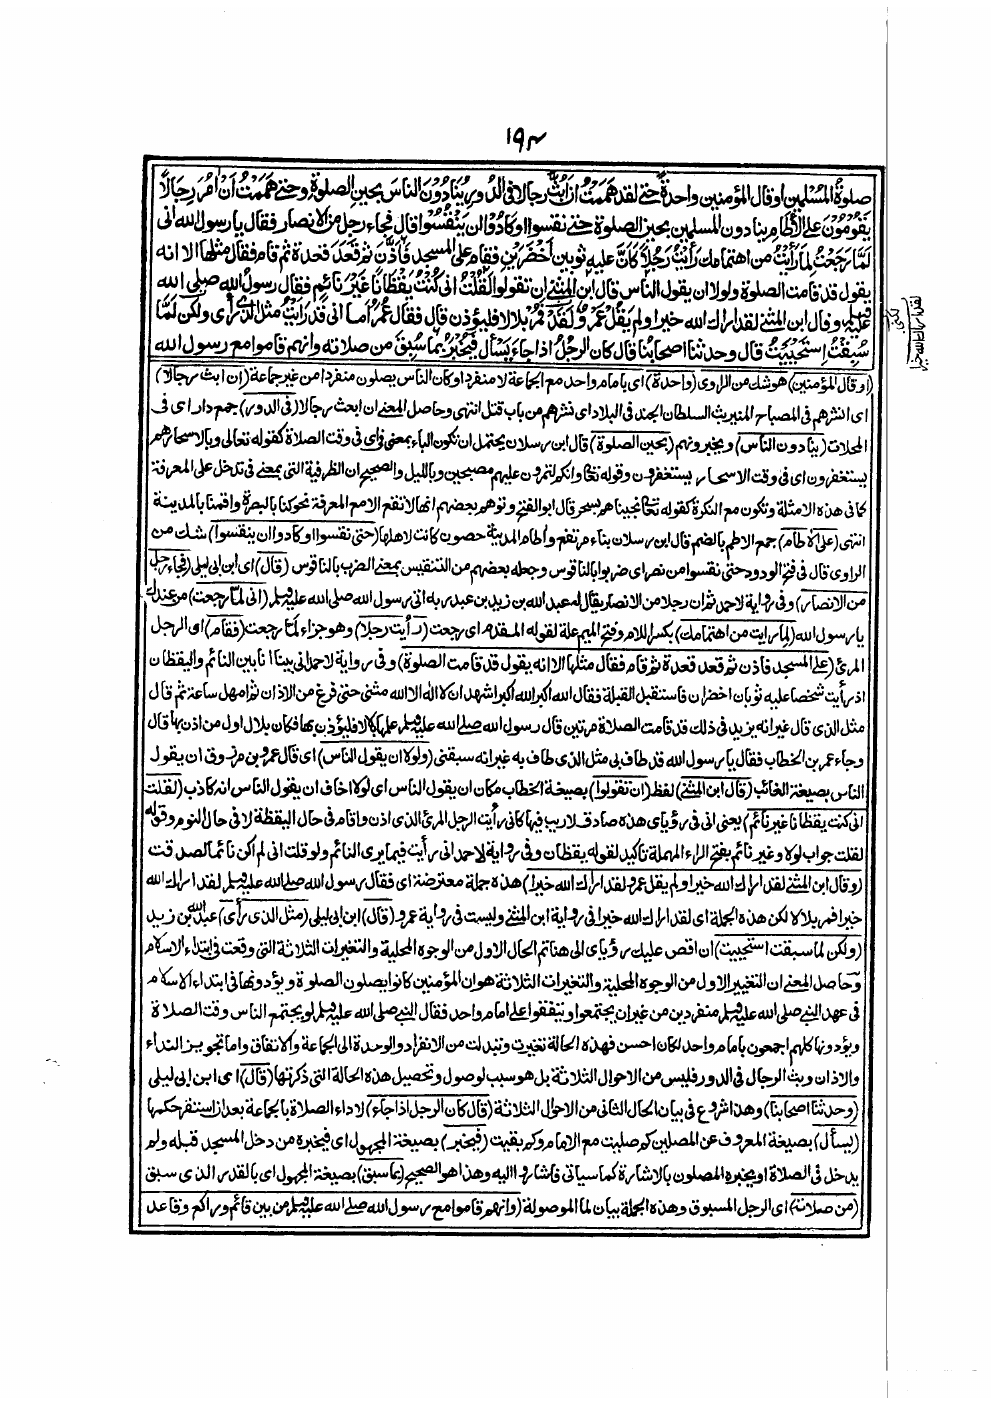 ١٩٤
صلوة المسلمين او قال المؤمنين واحدة حتى لقد هممت ان ابث رجالا في الدور ينادون الناس بحين الصلوة وحتى هممت ان آمر رجالا
يقومون على الآطام ينادون المسلمين بحين الصلوة حتى نقسوا او كادوا ان ينقسوا قال فجاء رجل من الانصار فقال يا رسول الله انى
لما رجعت لما رأيت من اهتمامك رأيت رجلا كأن عليه ثوبين اخضرين فقام على المسجد فأذن ثم قعد قعدة ثم قام فقال مثلها الا انه
يقول قد قامت الصلوة ولولا ان يقول الناس قال ابن المثنى ان تقولوا لقلت انى كنت يقظانا غير نائم فقال رسول الله صلى الله
عليه وسلم وقال ابن المثنى لقد اراك الله خيرا ولم يقل عمرو لقد فمر بلالا فليؤذن قال فقال عمر اما انى قد رأيت مثل الذى رأى ولكن لما
سبقت استحييت قال وحدثنا اصحابنا قال كان الرجل اذا جاء يسأل فيخبر بما سبق من صلاته وانهم قاموا مع رسول الله
(او قال المؤمنين) هو شك من الراوى (واحدة) اى بامام واحد مع الجماعة لا منفردا وكان الناس يصلون منفردا من غير جماعة (ان ابث رجالا)
اى انشرهم فى المصباح المنير بث السلطان الجند فى البلاد اى نشرهم من باب قتل انتهى وحاصل المعنى ان ابعث رجالا (فى الدور) جمع دار اى فى
المحلات (ينادون الناس) ويخبرونهم (بحين الصلوة) قال ابن رسلان يحتمل ان تكون الباء بمعنى فى اى فى وقت الصلاة كقوله تعالى وبالاسحار هم
يستغفرون اى فى وقت الاسحار يستغفرون وقوله تعالى وانكم لتمرون عليهم مصبحين وبالليل والصحيح ان الظرفية التى بمعنى فى تدخل على المعرفة
كما فى هذه الامثلة وتكون مع النكرة كقوله تعالى نجيناهم بسحر قال ابو الفتح وتوهم بعضهم انها لا تقع الا مع المعرفة نحو كنا بالبصرة واقمنا بالمدينة
انتهى (على الآطام) جمع الاطم بالضم قال ابن رسلان بناء مرتفع وآطام المدينة حصون كانت لاهلها (حتى نقسوا او كادوا ان ينقسوا) شك من
الراوى قال فى فتح الودود حتى نقسوا من نصر اى ضربوا بالناقوس وجعله بعضهم من التنقيس بمعنى الضرب بالناقوس (قال) اى ابن ابى ليلى (فجاء رجل
من الانصار) وفى رواية لاحمد ثم ان رجلا من الانصار يقال له عبد الله بن زيد بن عبد ربه اتى رسول الله صلى الله عليه وسلم (انى لما رجعت) من عندك
يا رسول الله (لما رايت من اهتمامك) بكسر اللام وفتح الميم علة لقوله المقدم اى رجعت (رأيت رجلا) وهو جزاء لما رجعت (فقام) اى الرجل
المرئ (على المسجد فاذن ثم قعد قعدة ثم قام فقال مثلها الا انه يقول قد قامت الصلوة) وفى رواية لاحمد انى بينا انا بين النائم واليقظان
اذ رأيت شخصا عليه ثوبان اخضران فاستقبل القبلة فقال الله اكبر الله اكبر اشهد ان لا اله الا الله مثنى حتى فرغ من الاذان ثم امهل ساعة ثم قال
مثل الذى قال غير انه يزيد فى ذلك قد قامت الصلاة مرتين قال رسول الله صلى الله عليه وسلم علمها بلالا فليؤذن بها فكان بلال اول من اذن بها قال
وجاء عمر بن الخطاب فقال يا رسول الله قد طاف بى مثل الذى طاف به غير انه سبقنى (ولولا ان يقول الناس) اى قال عمرو بن مرزوق ان يقول
الناس بصيغة الغائب (قال ابن المثنى) لفظ (ان تقولوا) بصيغة الخطاب مكان ان يقول الناس اى لولا اخاف ان يقول الناس انه كاذب (لقلت
انى كنت يقظانا غير نائم) يعنى انى فى رؤياى هذه صادق لا ريب فيها كانى رأيت الرجل المرئ الذى اذن واقام فى حال اليقظة لا فى حال النوم وقوله
لقلت جواب لولا وغير نائم بفتح الراء المهملة تأكيد لقوله يقظان وفى رواية لاحمد انى رأيت فيما يرى النائم ولو قلت انى لم اكن نائما لصدقت
(وقال ابن المثنى لقد اراك الله خيرا ولم يقل عمرو لقد اراك الله خيرا) هذه جملة معترضة اى فقال رسول الله صلى الله عليه وسلم لقد اراك الله
خيرا فمر بلالا لكن هذه الجملة اى لقد اراك الله خيرا فى رواية ابن المثنى وليست فى رواية عمرو (قال) ابن ابى ليلى (مثل الذى رأى) عبد الله بن زيد
(ولكن لما سبقت استحييت) ان اقص عليك رؤياى الى هنا تم الحال الاول من الوجوه المحلية والتغيرات الثلاثة التى وقعت فى ابتداء الاسلام
وحاصل المعنى ان التغيير الاول من الوجوه المحلية والتغيرات الثلاثة هو ان المؤمنين كانوا يصلون الصلوة ويؤدونها فى ابتداء الاسلام
فى عهد النبى صلى الله عليه وسلم منفردين من غير ان يجتمعوا ويتفقوا على امام واحد فقال النبى صلى الله عليه وسلم لو يجتمع الناس وقت الصلاة
ويؤدونها كلهم اجمعون بامام واحد لكان احسن فهذه الحالة تغيرت وتبدلت من الانفراد والوحدة الى الجماعة والاتفاق واما تجويز النداء
والاذان وبث الرجال فى الدور فليس من الاحوال الثلاثة بل هو سبب لوصول وتحصيل هذه الحالة التى ذكرتها (قال) اى ابن ابى ليلى
(وحدثنا اصحابنا) وهذا شروع فى بيان الحال الثانى من الاحوال الثلاثة (قال كان الرجل اذا جاء) لاداء الصلاة بالجماعة بعد ان استقر حكمها
(يسأل) بصيغة المعروف عن المصلين كم صليت مع الامام وكم بقيت (فيخبر) بصيغة المجهول اى فيخبره من دخل المسجد قبله ولم
يدخل فى الصلاة او يخبره المصلون بالاشارة كما سياتى فاشاروا اليه وهذا هو الصحيح (بما سبق) بصيغة المجهول اى بالقدر الذى سبق
(من صلاته) اى الرجل المسبوق وهذه الجملة بيان لما الموصولة (وانهم قاموا مع رسول الله صلى الله عليه وسلم من بين قائم وراكع وقاعد